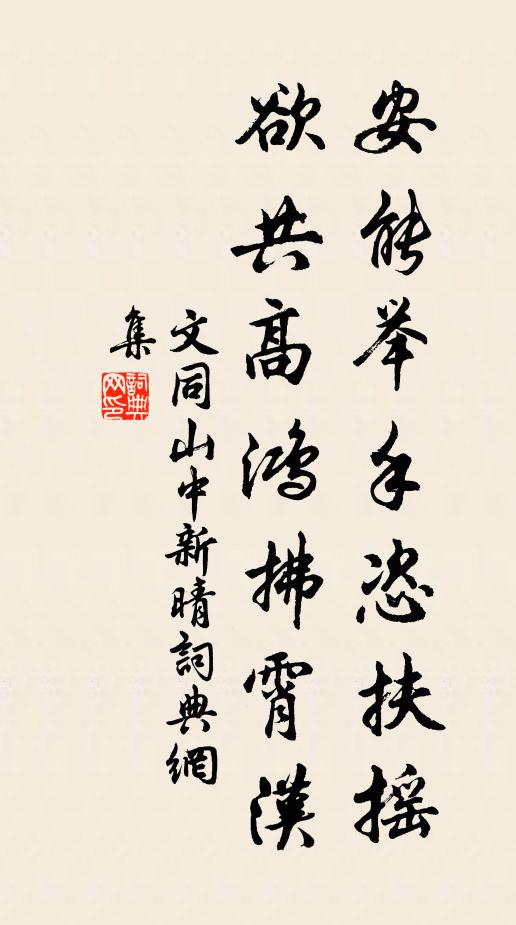 安能举手恣扶摇
欲共高鸿拂霄漢
文同山中新晴詞典網
集
詞典
网印